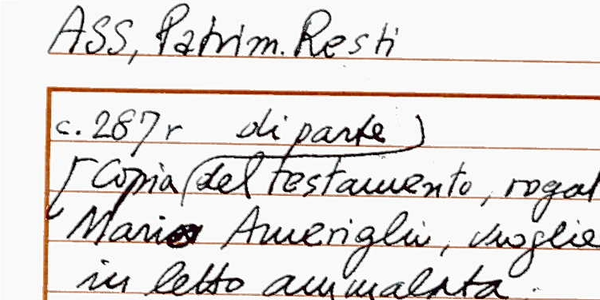 ASS, Patrim. Resti
c. 287r di parte
[Copia del testamento, rogat
Maria Amerighi, moglie
in letto ammalata.